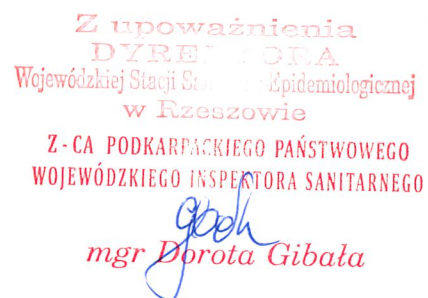 Z upoważnienia
DYREKTORA
Wojewódzkiej Stacji Epidemiologicznej
w Rzeszowie
Z-CA PODKARPACKIEGO PAŃSTWOWEGO
WOJEWÓDZKIEGO INSPEKTORA SANITARNEGO
mgr Dorota Gibała